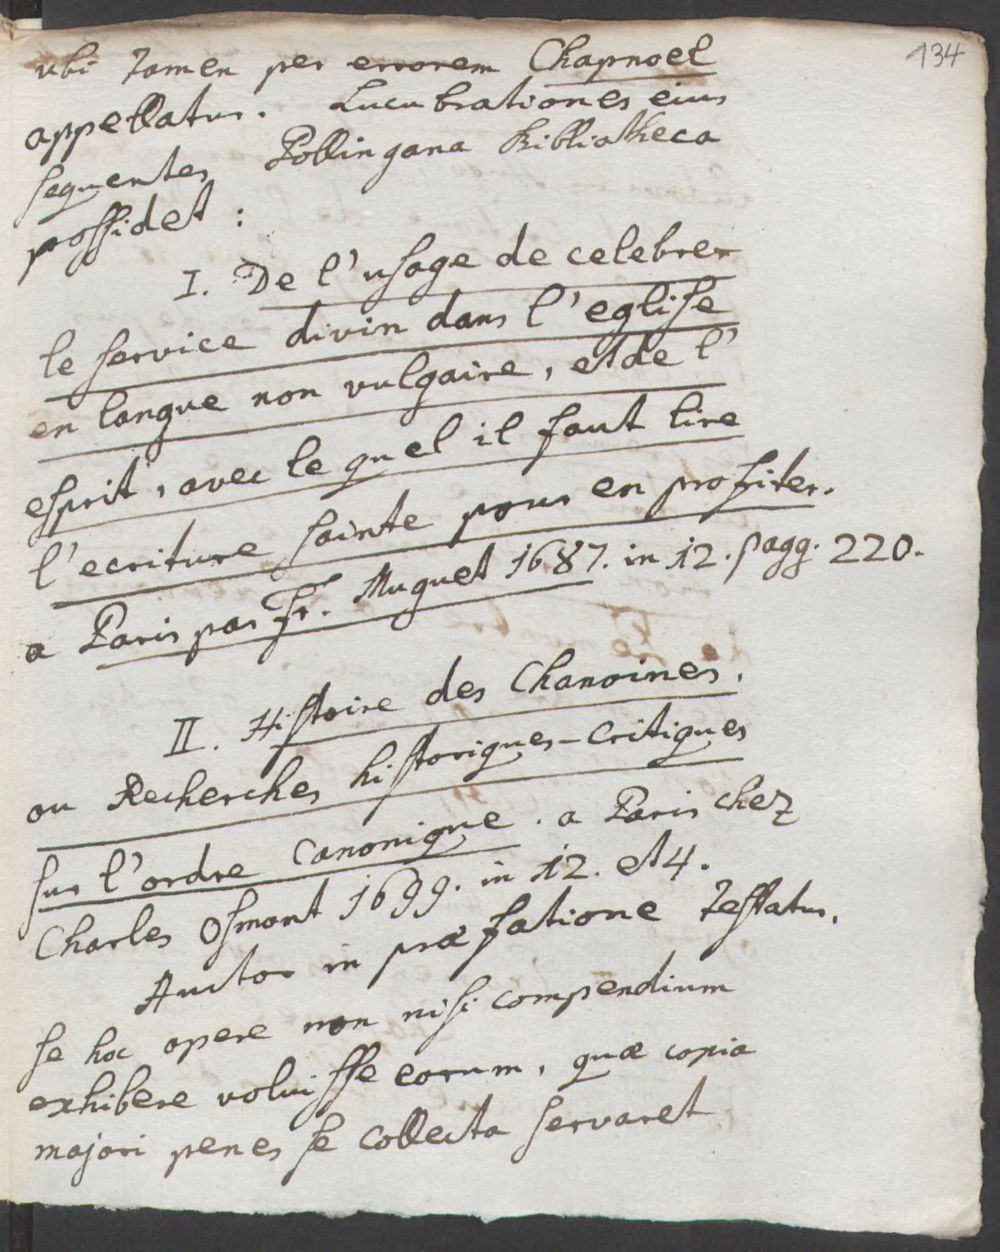 134
ubi tamen per errorem Chapnoel
appellatur. Lucubrationes eius
sequentes Pollingana Bibliotheca
possidet:
I. De l'usage de celebrer
le service divin dans l'eglise
en langue non vulgaire, et de l'
esprit, avec le quel il faut lire
l'ecriture sainte pour en profiter.
a Paris par Fr. Muguet 1687. in 12. pagg. 220.
II. Histoire des Chanoines.
ou Recherches historiques-critiques
sur l'ordre Canonique. a Paris chez
Charles Osmont 1699. in 12. et 4.
Auctor in præfatione testatur,
se hoc opere non nisi compendium
exhibere voluisse eorum, quæ copia
majori penes se collecta servaret